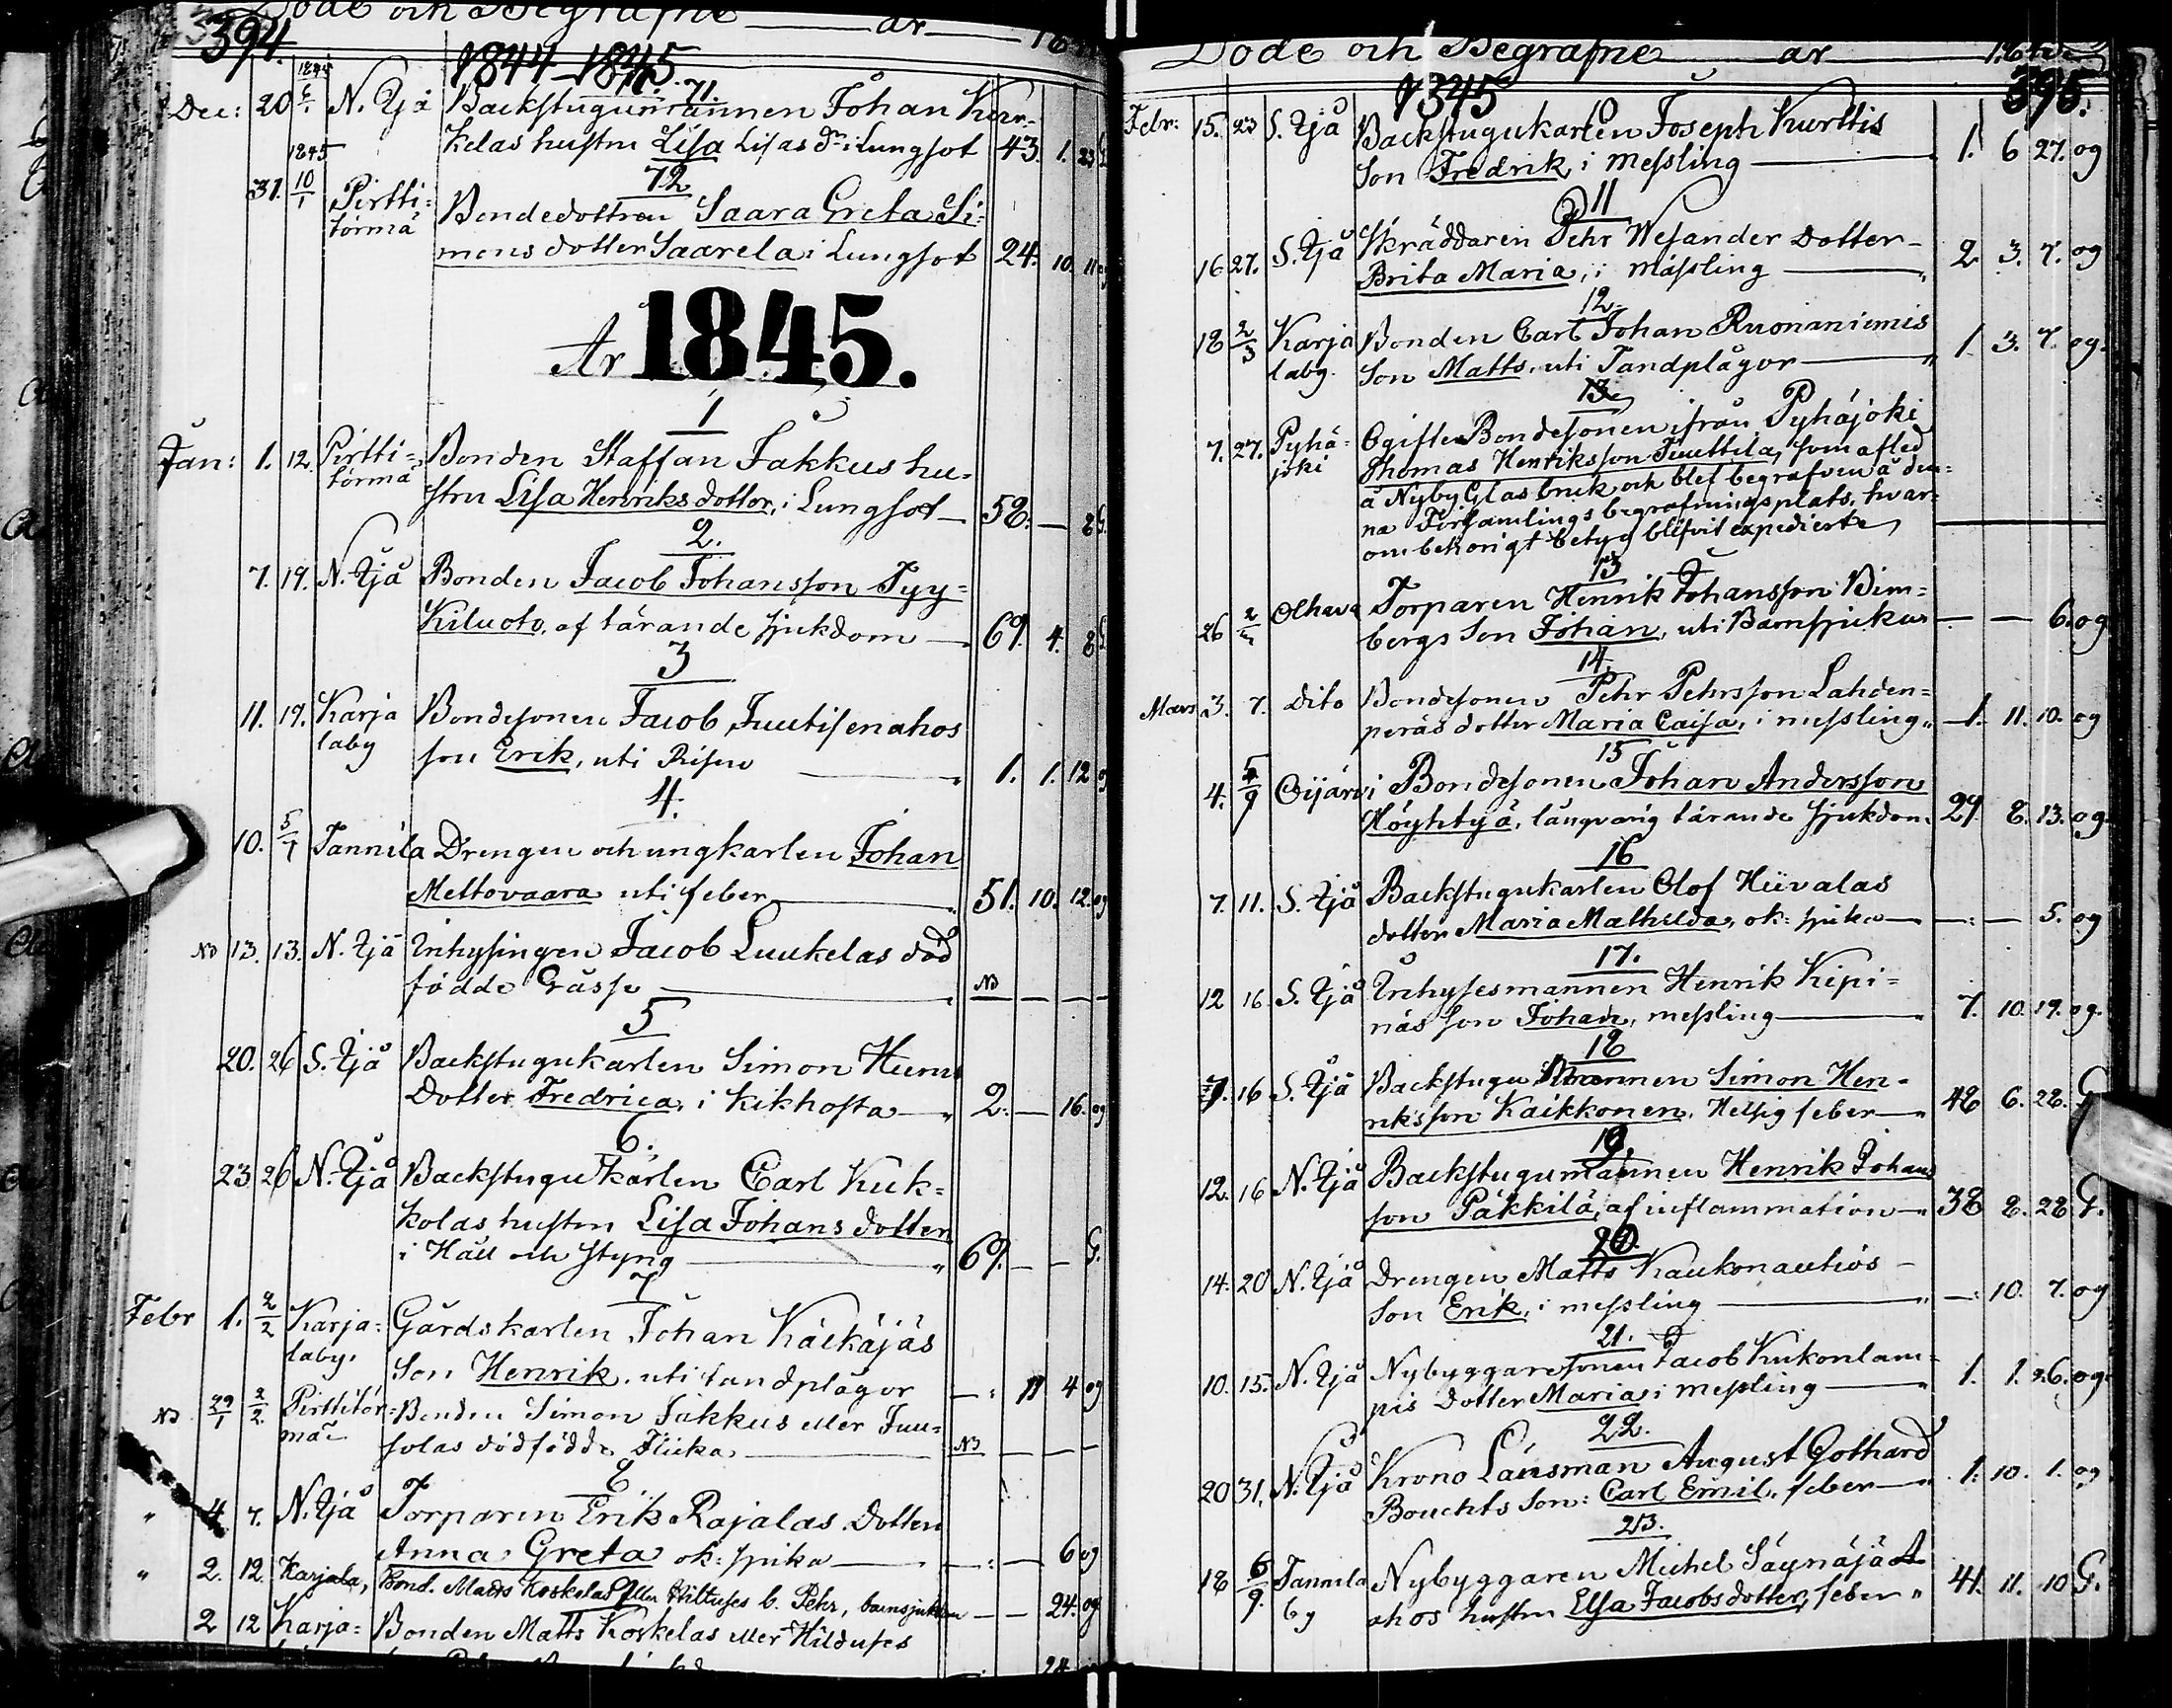 Döde och Begrafne år 18
394.
1844 1845.
71.
Dec: 20 1845 6/1 N. Ijå Backstugumannen Johan Kur-
kelas hustru Lisa Lisas dr i Lungsot 43. 1. 23 G.
72
31. 1845 10/1 Pirtti- Bondedottren Saara Greta Si-
törmä mons dotter Saarela i Lungsot 24. 10. 11 og
År 1845.
1
Jan: 1. 12. Pirtti- Bonden Staffan Jakkus hu-
törmä stru Lisa Henriksdotter, i Lungsot 58. — 8 G.
2.
7. 19. N. Ijå Bonden Jacob Johansson Tyy-
Kiluoto, af tärande sjukdom 69. 4. 8 G.
3
11. 19. Karja Bondesonen Jacob Juutisenahos
laby son Erik, uti Risen 1. 1. 12 og
4.
10. 5/1 Tannila Drengen och ungkarlen Johan
Mettovaara uti feber 51. 10. 12. og
NB 13. 13. N. Ijå Inhysingen Jacob Luukelas död
födde Gåsse NB — — —
5
20. 26 S. Ijå Backstugukarlen Simon Hiens
Dotter Fredrica, i Kikhosta 2. — 16. og
6.
23 26 N. Ijå Backstugukarlen Carl Kuk-
kolas hustru Lisa Johans dotter
i Håll och styng 69. — — G.
7
Febr 1. 2/2 Karja- Gårdskarlen Johan Käckäjäs
laby. Son Henrik, uti tandplågor — 11 4 og
NB 29/1 2/2 Pirttitör- Bonden Simon Jakkus eller Juu-
mä solas dödfödde Flicka NB — — —
8
" 4 7. N. Ijå Torparen Erik Rajalas Dotter
Anna Greta ok: spika — — 6 og
" 2. 12. Karjala, Bond. Matts Koskelas eller Hiltuses b. Pehr, barnsjukdom — — 24. og
2 12 Karja- Bonden Matts Koskelas eller Hilduses
24
Döde och Begrafne år 18
1845 395.
10
Febr: 15. 23 S. Ijå Backstugukarlen Joseph Kurttis
Son Fredrik, i messling 1. 6 27. og
11
16 27. S. Ijå Skräddaren Pehr Wesander Dotter
Brita Maria, i mässling 2 3. 7. og
12.
18 2/3 Karja Bonden Carl Johan Ruonaniemis
laby. Son Matts, uti Tandplågor 1. 3. 7. og.
13
7. 27. Pyhä- Ogifte Bondesonen ifrån Pyhäjoki
joki Thomas Henriksson Tuuttila, som afled
å Nyby Glasbruk och blef begrafven å den-
na Församlings begrafningsplats, hvar-
om behörigt betyg blifvit expedierte
13
26 2/3 Olhava Torparen Henrik Johansson Bim-
bergs Son Johan, uti Barnsjukan — — 6. og
14.
Mars 3. 7. Dito Bondesonen Pehr Pehrsson Lahden-
peräs dotter Maria Caisa, i messling 1. 11. 10. og
15
4. 5/9 Oijärvi Bondesonen Johan Andersson
Höyhtyä, långvarig tärande sjukdom 29. 8. 13. og.
16
7. 11. S. Ijå Backstugukarlen Olof Hiivalas
dotter Maria Mathilda, ok: spika — — 5. og
17.
12 16 S. Ijå Inhysesmannen Henrik Kipi-
näs son Johan, messling 7. 10. 19. og.
18
7. 16 S. Ijå Backstugu Mannen Simon Hen-
riksson Kaikkonen, Hetsig feber 48 6. 28. G
19
12. 16 N. Ijå Backstugumannen Henrik Johans
son Päkkilä, af inflammation 38 8. 28 G.
20.
14. 20 N. Ijå Drengen Matts Kaukonautios
Son Erik, i messling — 10. 7. og
21.
10. 15. N. Ijå Nybyggaresonen Jacob Kukonlam-
pis Dotter Maria, i messling 1. 1. 26. og.
22.
20 31. N. Ijå Krono Länsman August Gothard
Bouchts Son: Carl Emil, feber 1. 10. 1. og
23.
18 6/9. Tannila Nybyggaren Michel Säynäjä
by ahos hustru Elsa Jacobsdotter, feber 41. 11. 10 G.